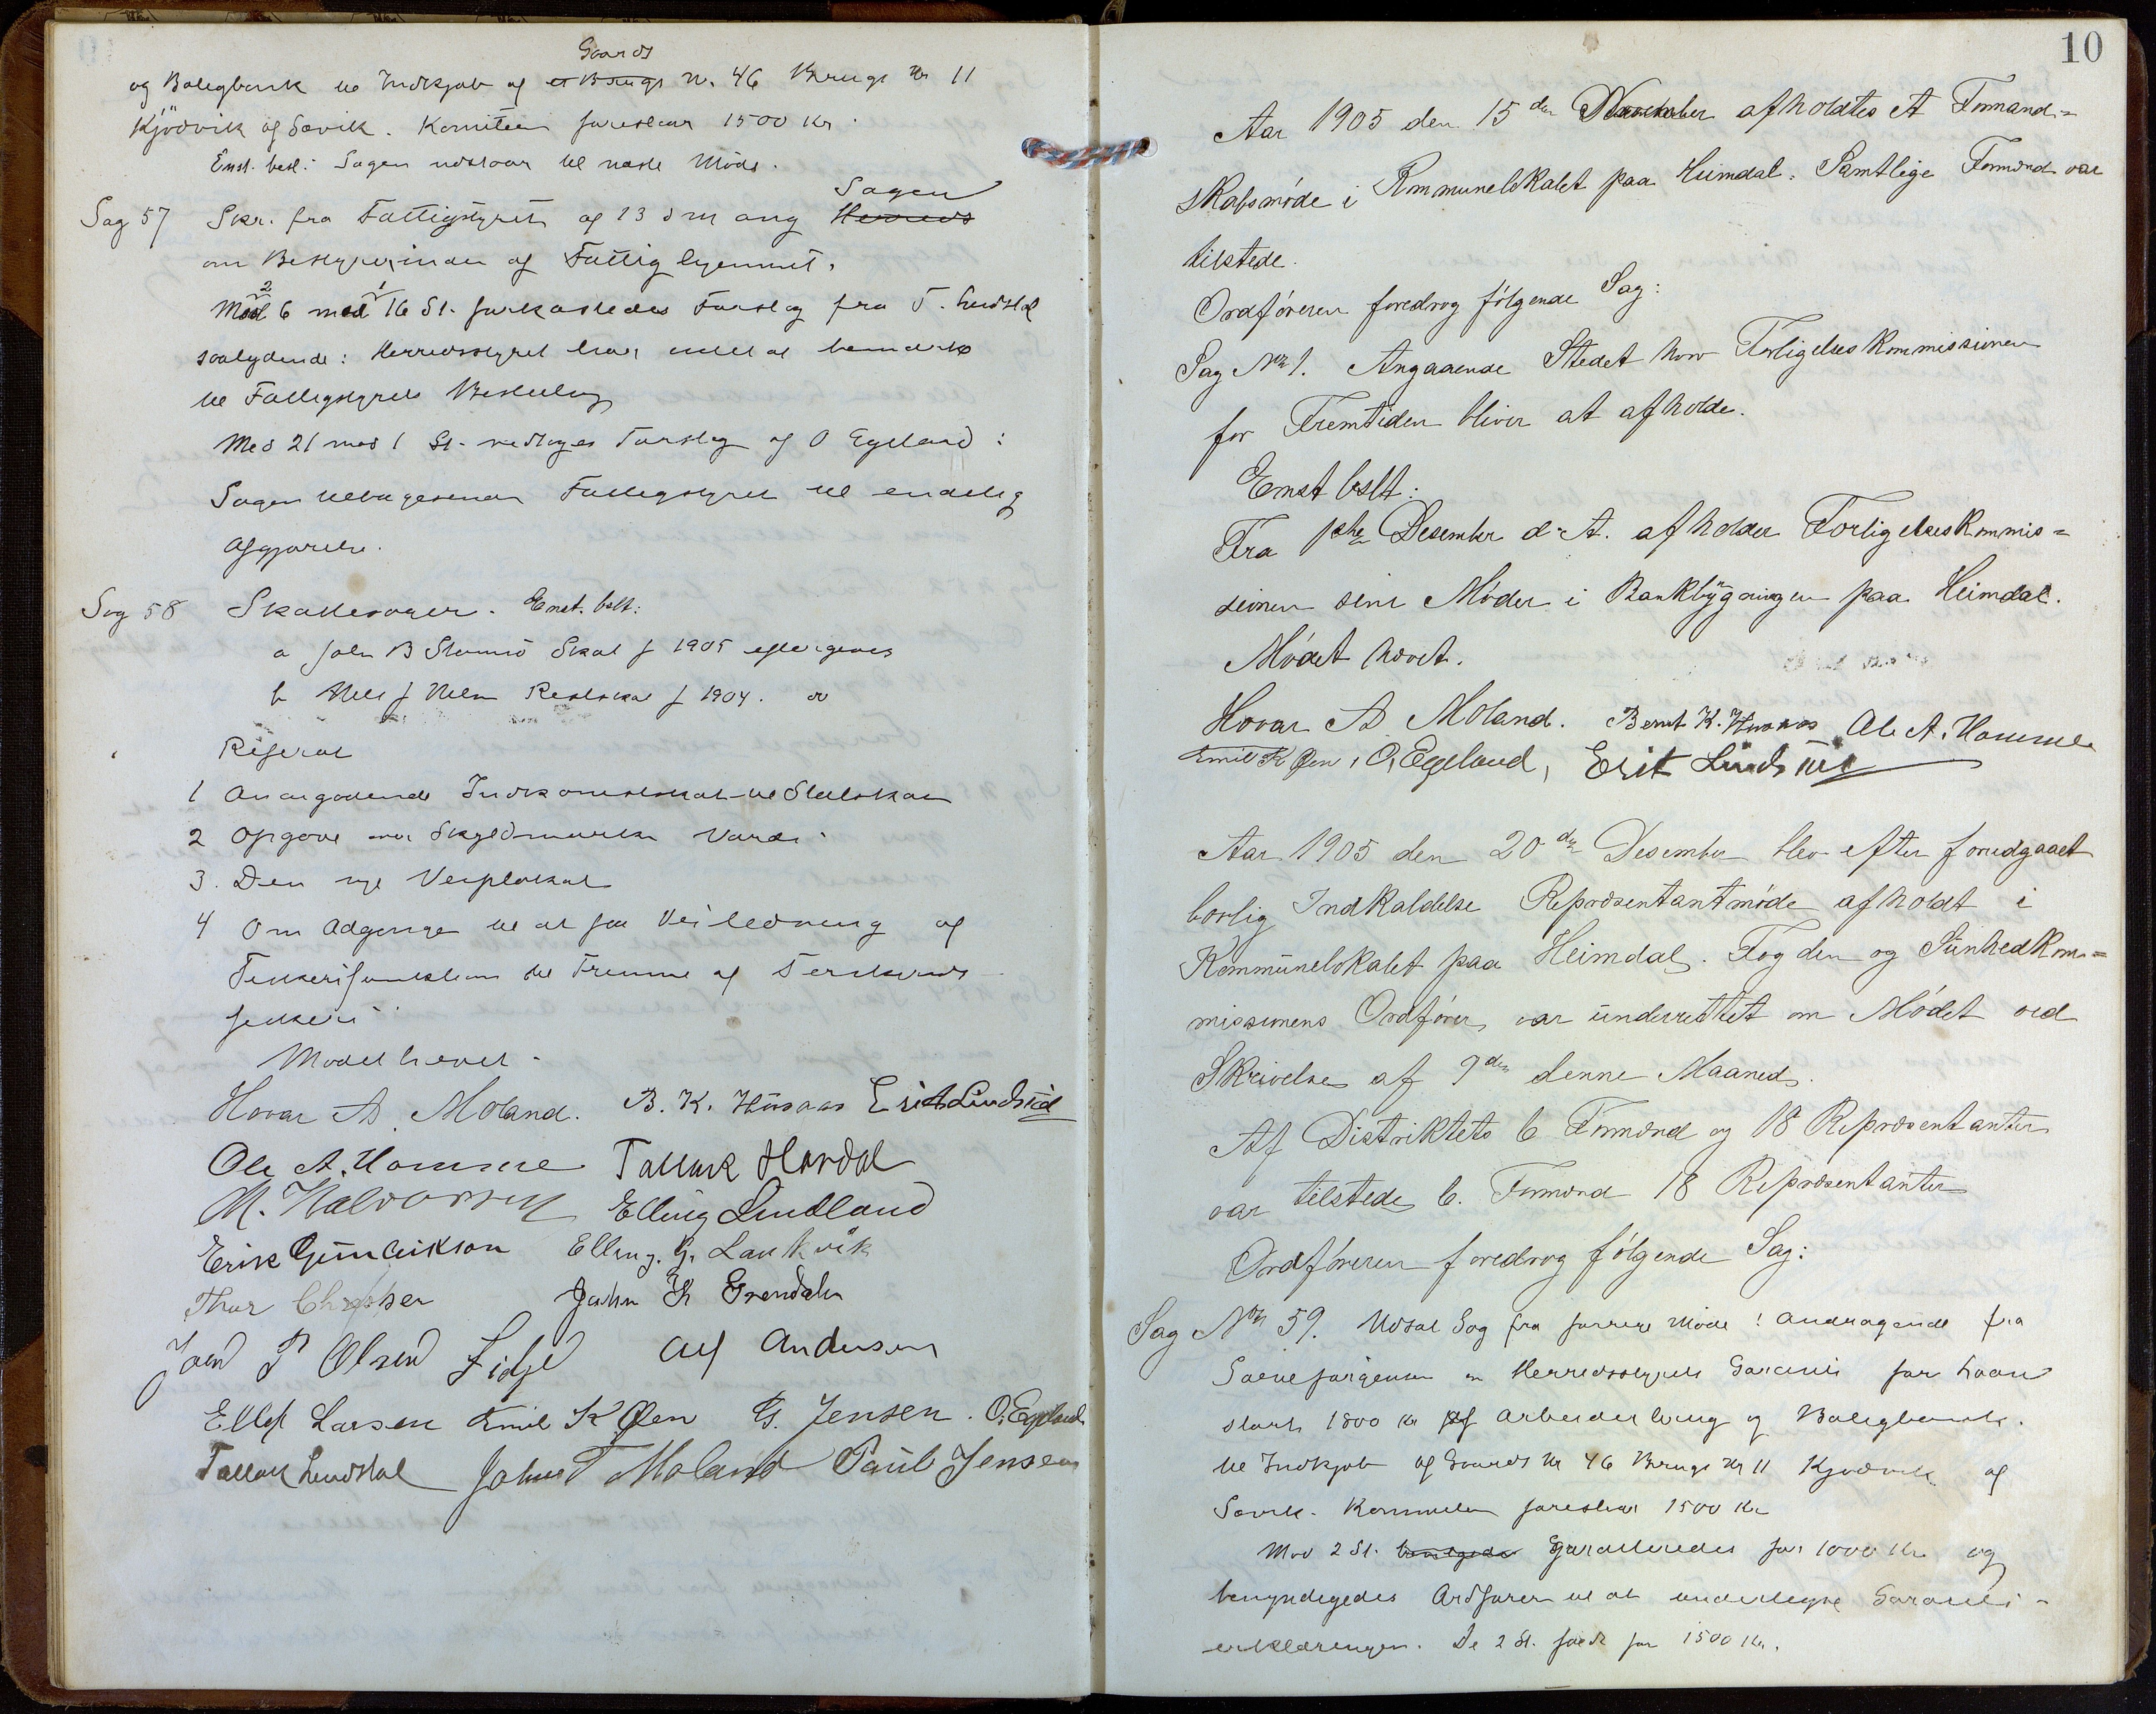 og Boligbank til Indkjøb af et Brugs Gaards Nr. 46 Brugs Nr 11
Kjødvik af Savik. Komiteen foreslaar 1500 Kr.
Enst. besl: Sagen udstaar til næste Møde.
Sag 57 Skr. fra Fattigstyret af 13 d m ang Herreds Sagen
om Bestyrerinden af Fattighjemmet.
Mod 6 mod 16 St. forkastedes Forslag fra T. Lindstøl
saalydende: Herredsstyret har intet at bemærke
til Fattigstyrets Beslutning
Med 21 mod 1 St. vedtoges Forslag af O Egeland:
Sagen tilbagesendes Fattigstyret til endelig
Afgjørelse.
Sag 58 Skattesager. Enst. beslt:
a John B Skat f 1905 eftergives
b Nils J Restskat f 1904. do
Referat
1 Indkomstskat til Statskassen
2 Opgave over Skyldmarkens Værdi
3. Den nye Veiplakat
4 Om Adgange til at faa Veiledning og
til Fremme af Ferskvands
fiskeri
Mødet hævet.
Hovar A. Moland. B. K. Husaas Erik Lindstøl
Ole A. Homme Tallak Hardal
M. Halvorsen Elling Lindland
Erik Gundersen Elling. G. Laukvik
Thor John K Grendalen
Joen P Olsen Fidje Alf Andersen
Ellef Larsen Emil K Øen G. Jensen. O. Egeland
Tallak Lindstøl Johns T Moland Paul Jensen
10
Aar 1905 den 15de November afholdtes et Formand=
skabsmøde i Kommunelokalet paa Heimdal. Samtlige Formænd var
tilstede.
Ordføreren foredrog følgende Sag:
Sag No 1. Angaaende Stedet hvor Forligelseskommissionen
for Fremtiden bliver at afholde.
Enst beslt:
Fra 1ste Desember d. A. afholder Forligelseskommis=
sionen sine Møder i Bankbygningen paa Heimdal.
Mødet hævet.
Hovar A Moland. Bernt K. Husaas Ole A. Homme
Emil K Øen, O. Egeland, Erik Lindstøl
Aar 1905 den 20de Desember blev efter forudgaaet
lovlig Indkaldelse Repræsentantmøde afholdt i
Kommunelokalet paa Heimdal. Fogden og Sunhedkom=
missionens Ordfører var underrettet om Mødet ved
Skrivelse af 9de denne Maaned.
Af Distriktets 6 Formænd og 18 Repræsentanter
var tilstede 6. Formænd 18 Repræsentanter
Ordføreren foredrog følgende Sag:
Sag No 59. Udsat Sag fra forrige Møde: Andragende fra
om Herredsstyrets Garanti for Laan
stort 1800 Kr af Arbeiderbrug og Boligbank.
til Indkjøb af Gaards Nr 46 Brugs Nr 11 Kjødvik af
Savik. Kommiteen foreslaar 1500 Kr
Mod 2 St. bevilgedes garanteredes for 1000 Kr og
bemyndigedes Ordfører til at undertegne Garanti-
erklæringen. De 2 St. faldt for 1500 Kr.